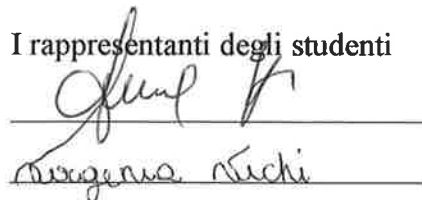 I rappresentanti degli studenti
Virginia Vichi